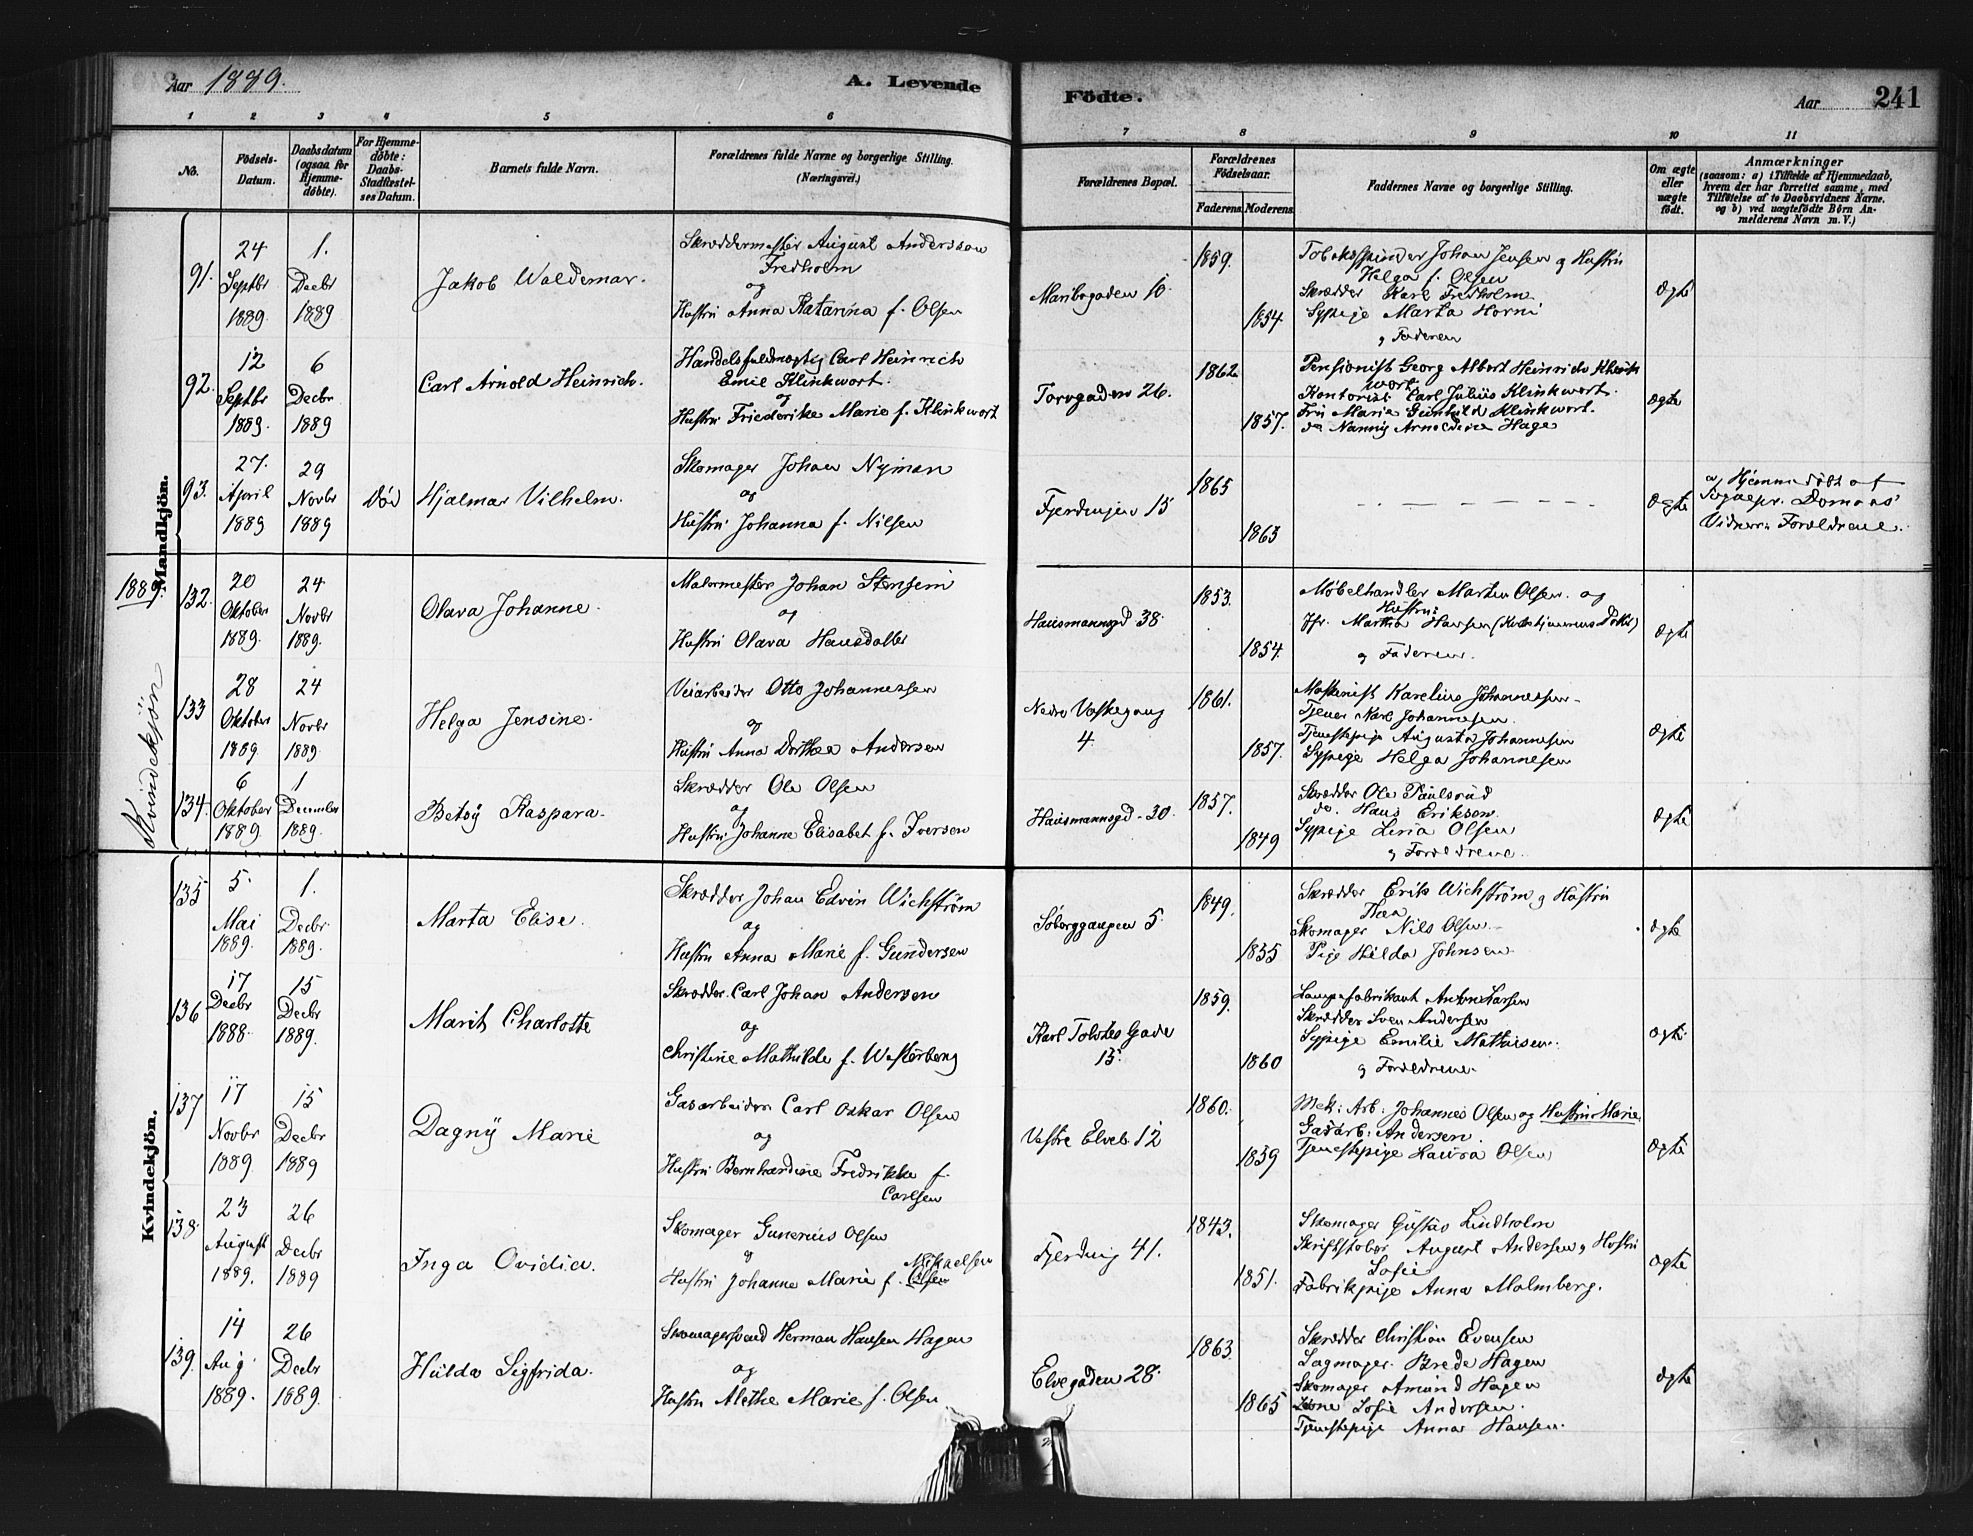 Aar 1889.
A. Levende Födte.
Aar 241
1 2 3 4 5 6 7 8 9 10 11
No.
Födsels-Datum.
Daabsdatum (ogsaa for Hjemmedöbte).
For Hjemmedöbte: Daabs-Stadfæstelses Datum.
Barnets fulde Navn.
Forældrenes fulde Navne og borgerlige Stilling. (Næringsvei.)
Forældrenes Bopæl.
Forældrenes Födselsaar.
Faderens. Moderens.
Faddernes Navne og borgerlige Stilling.
Om ægte eller uægte födt.
Anmærkninger
(saasom: a) i Tilfælde af Hjemmedaab,
hvem der har forrettet samme, med
Tilföielse af to Daabsvidners Navne.
og b) ved uægtefödte Börn Anmelderens Navn m. V.)
Mandkjön.
91. 24 Septbr 1889. 1. Decbr 1889
Jakob Waldemar.
Skræddermester August Anderssen
Fredholm
og
Hustru Anna Katarina f. Olsen
Maribogaden 10.
1859. 1854.
Tobakspinder Johan Jensen og Hustru
Helga f. Olsen
Skrædder Karl Fredholm.
Sypige Marta Horni
og Faderen
ægte
92. 12 Septbr 1889. 6 Decbr 1889
Carl Arnold Heinrich.
Handelsfuldmægtig Carl Heinrich
Emil Klinkwort.
og
Hustru Friederike Marie f. Klinkwort
Torvgaden 26.
1862 1857.
Pensionist Georg Albert Heinrich Klinkwort.
Kontorist Carl Julius Klinkwort.
Fru Maria Gunhild Klinkwort.
do Nanny Arnoldine Hage
ægte
93. 27. April 1889 29 Novbr 1889
Död
Hjalmar Vilhelm.
Skomager Johan Nyman
og
Hustru Johanna f. Nilsen
Fjerdingen 15
1865 1863
ægte
a, Hjemmedöbt af
Sognepr. Domaas
Vidner: Forældrene.
1889.
Kvindekjön
132. 20 Oktober 1889. 24 Novbr 1889.
Olava Johanne.
Malermester Johan Stensein
og
Hustru Olava Hansdatter
Hausmannsgd 38.
1853. 1854.
Möbelhandler Marten Olsen og
Hustru
Jfr. Martha Hansen
og Faderen.
ægte
133 28 Oktober 1889. 24 Novbr 1889.
Helga Jensine.
Veiarbeider Otto Johannessen
og
Hustru Anna Dorthea Andersen
Nedre Vaskegang
4.
1861. 1857.
Maskinist Karelius Johannessen.
Tjener Karl Johannesen.
Tjenestepige Augusta Johannesen
Sypige Helga Johannesen
ægte
134. 6 Oktober 1889. 1 December 1889.
Betsy Kaspara.
Skrædder Ole Olsen
og
Hustru Johanne Elisabet f. Iversen
Hausmannsgd. 30.
1857. 1849
Skrædder Ole Paulsrud
do. Hans Eriksen.
Sypige Lina Olsen
og Forældrene.
ægte
Kvindekjön.
135 5. Mai 1889. 1. Decbr 1889.
Marta Elise.
Skrædder Johan Edvin Wichström
og
Hustru Anna Marie f. Gundersen
Söborggangen 5.
1849. 1855
Skrædder Erik Wichström og Hustru
Thea
Skomager Nils Olsen.
Pige Hilda Johnsen.
ægte
136 17 Decbr 1888. 15 Decbr 1889.
Marit Charlotte
Skrædder Carl Johan Andersen
og
Christine Mathilde f. Westerberg
Karl Tolstes Gade
15.
1859. 1860
Lampefabrikant Anton Larsen
Skrædder Sven Andersen
Sypige Emilie Mathisen.
og Forældrene.
ægte
137 17 Novbr 1889. 15 Decbr 1889
Dagny Marie
Gasarbeider Carl Oskar Olsen
og
Hustru Bernhardine Fredrikke f.
Carlsen
Vestre Elveb. 12
1860. 1859
Mek: Arb: Johannes Olsen og Hustru Marie.
Gasarb: Andersen.
Tjenestepige Laura Olsen
ægte
138. 23 August 1889. 26 Decbr 1889
Inga Ovidia.
Skomager Gunerius Olsen
og
Hustru Johanne Marie f. Mikkelsen
Olsen
Fjerding 41.
1843. 1851.
Skomager Gustav Lindholm
Skriftstöber August Andersen og Hustru
Sofie
Fabrikpige Anna Malmberg.
ægte
139. 14 Aug. 1889. 26 Decbr 1889.
Hulda Sigfrida.
Skomagersvend Herman Hansen Hagen
og
Hustru Alethe Marie f. Olsen
Elvegaden 28.
1863. 1865
Skrædder Christian Evensen
Sagmager Brede Hagen
Skomager Amund Hagen
Kone Sofie Andersen.
Tjenestepige Anna Hansen.
ægte